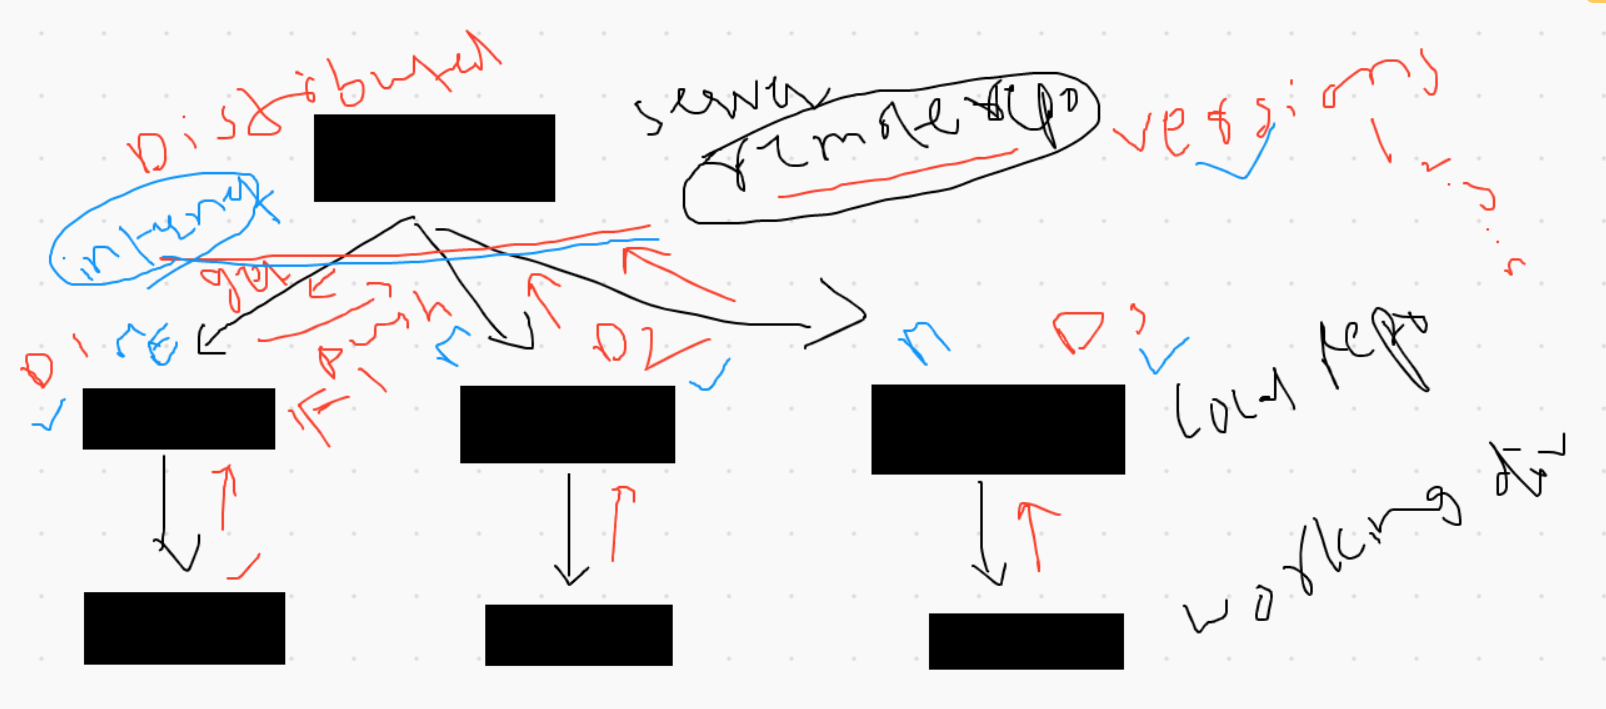 Distributed
server
remote repo
versions
1
2
3
n
internet
get
push
D1
D2
n
D3
local repo
working dir